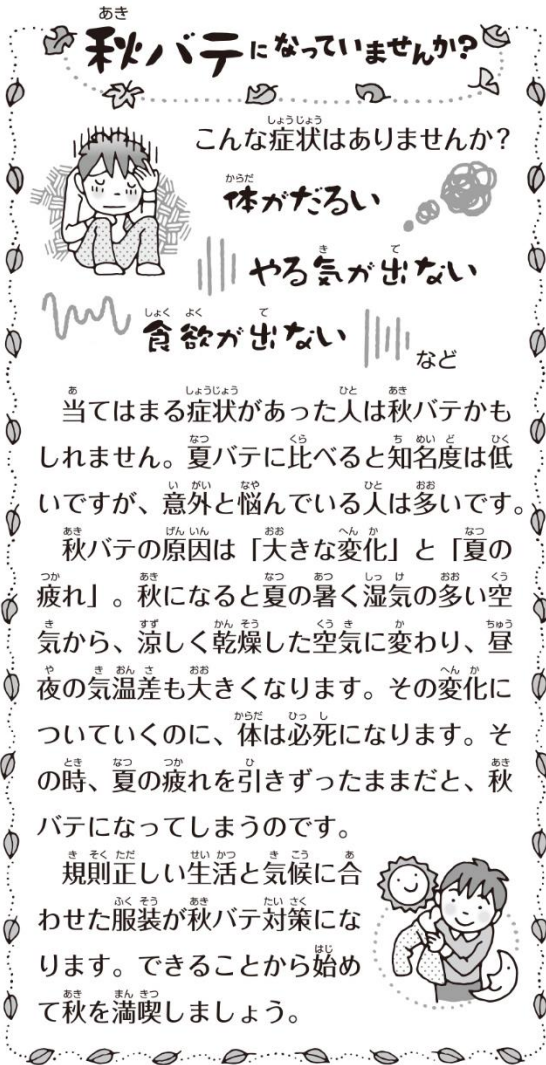 秋バテになっていませんか?
こんな症状はありませんか?
体がだるい
やる気が出ない
食欲が出ない
など
当てはまる症状があった人は秋バテかも
しれません。夏バテに比べると知名度は低
いですが、意外と悩んでいる人は多いです。
秋バテの原因は「大きな変化」と「夏の
疲れ」。秋になると夏の暑く湿気の多い空
気から、涼しく乾燥した空気に変わり、昼
夜の気温差も大きくなります。その変化に
ついていくのに、体は必死になります。そ
の時、夏の疲れを引きずったままだと、秋
バテになってしまうのです。
規則正しい生活と気候に合
わせた服装が秋バテ対策にな
ります。できることから始め
て秋を満喫しましょう。